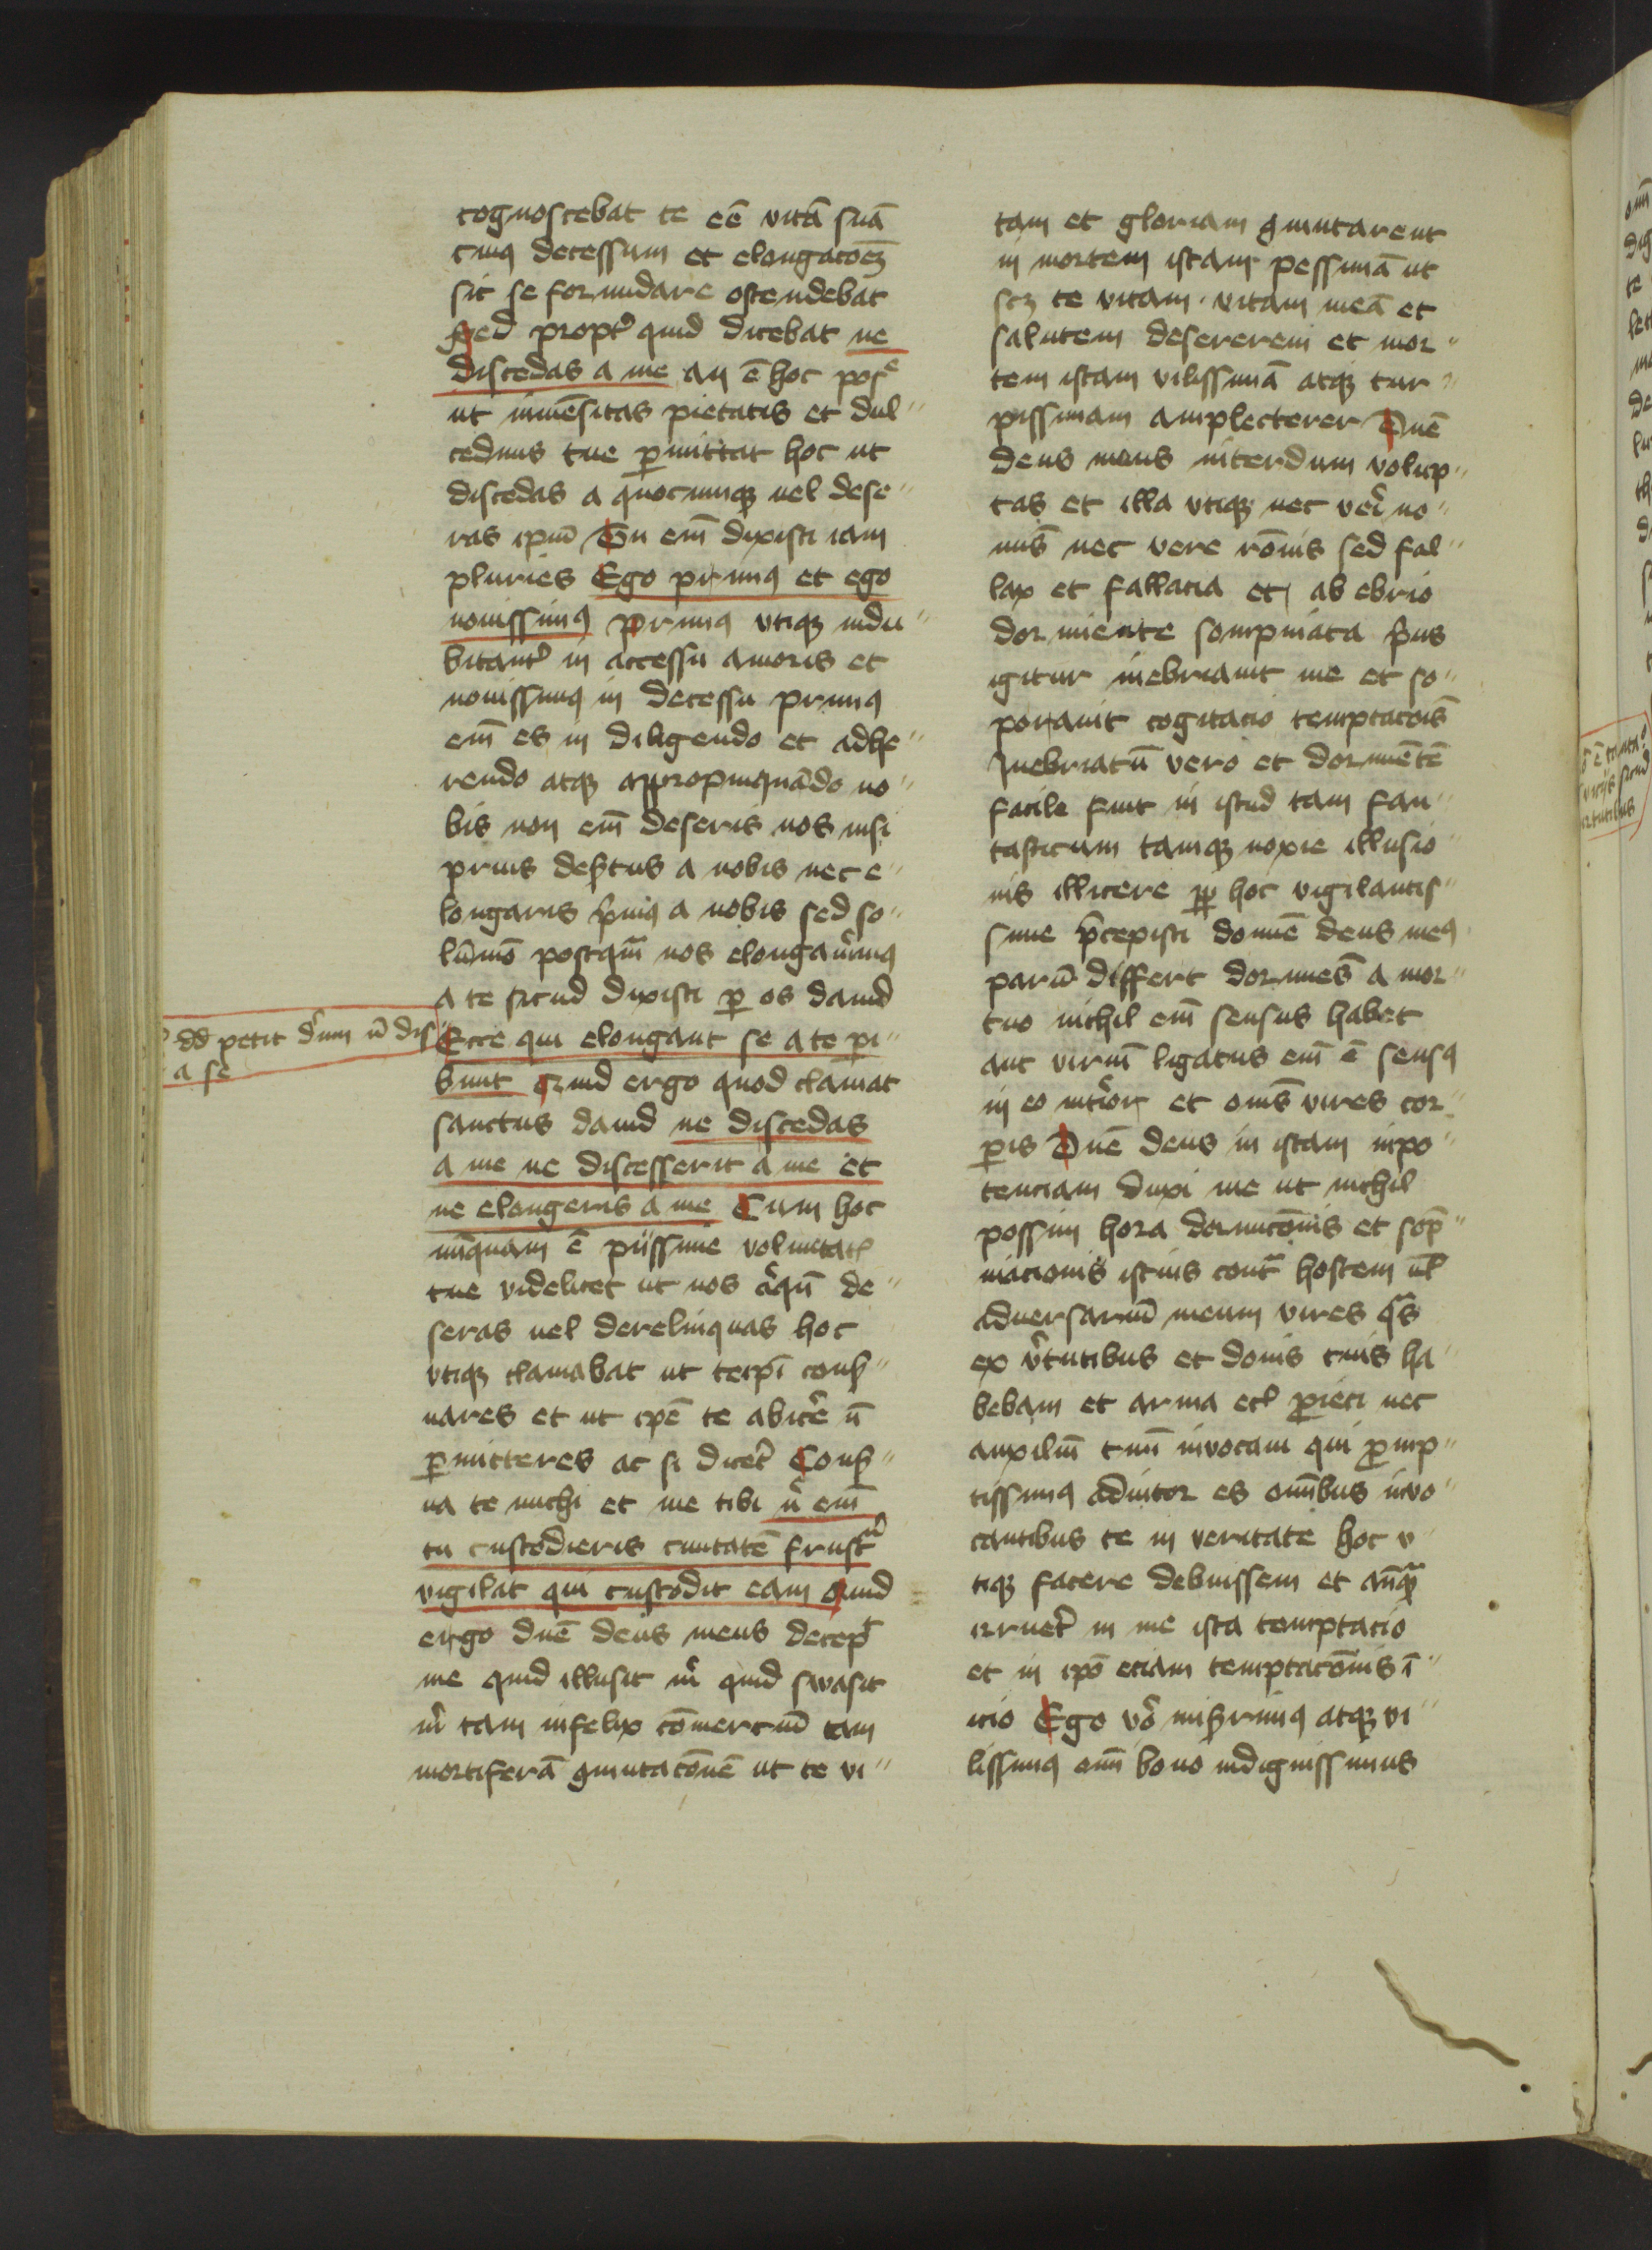 cognoscebat te eē vitā suā
cuiꝰ decessum et elongacōeꝫ
sic se formidare ostendebat
Sed propt̉ quid dicebat ne
discedas a me an ē hoc posᵉ
ut inmēsitas pietatis et dul〃
cedinis tue ꝑmittat hoc ut
discedas a quocumqꝫ uel dese〃
ras ipm̄ Tu em̄ dixisti iam
pluries Ego primꝰ et ego
nouissimꝰ Primꝰ vtiqꝫ indu〃
bitant̉ in accessu amoris et
nouissimꝰ in decessu primꝰ
em̄ es in diligendo et adhe〃
rendo atqꝫ appropinquādo no〃
bis non em̄ deseris nos nisi
prius desertus a nobis nec e〃
longaris p̄mꝰ a nobis sed so〃
lūmō postqm̄ nos elongau̓imꝰ
a te sicud dixisti ꝑ os dauid
Ecce qui elongant se a te pi〃
bunt Quid ergo quod clamat
sanctus dauid ne discedas
a me ne discesserit a me et
ne elongeris a me Cum hoc
nūquam ē piissime voluntatꝭ
tue videlicet ut nos aͥqn̄ de〃
seras uel derelinquas hoc
vtiqꝫ clamabat ut teip̄i conẜ〃
uares et ut ip̄e te abic̓e n̄
ꝑmitteres ac si dicet̉ Conẜ〃
ua te michi et me tibi nͥ em̄
tu custodieris ciuitatē frustͣ
vigilat qui custodit eam Quid
ergo dn̄e deus meus decep̄t
me quid illusit mͥ quid swasit
mͥ tam infelix cōmerciū tam
mortiferā ꝯmutacōnē ut te vi〃
dd petit dn̄um n̄ dis
a se
tam et gloriam ꝯmutarent
in mortem istam pessimā ut
scꝫ te vitam · vitam meā et
salutem desererem et mor〃
tem istam vilissimā atqꝫ tur〃
pissimam amplecterer Dn̄e
deus meus interdum volup〃
tas et illa vtiqꝫ nec veri no〃
mīs nec vere rōnis sed fal〃
lax et fallacia et ab ebrio
dormiente sompniata p̄us
igitur inebriauit me et so〃
porauit cogitacio temptacōis
Inebriatū vero et dormiētē
facile fuit in istud tam fan〃
tasticum tamqꝫ noxie illusio〃
nis illicere ꝓpt̉ hoc vigilantis〃
sime p̄cepisti domīe deus meꝰ
parū differt dormiēs a mor〃
tuo nichil em̄ sensus habet
aut viriū ligatus em̄ ē sensꝰ
in eo int̓ior et om̄s vires cor〃
ꝑis Dn̄e deus in istam inpo〃
tenciam duxi me ut nichil
possim hora dormicōnis et somp̄〃
niacionis istius contͣ hostem ul̄
aduersariū meum vires qͣs
ex v̓tutibus et donis tuis ha〃
bebam et arma ecꝭ ꝓieci nec
auxiliū tuū inuocaui qui ꝓmp〃
tissimꝰ adiutor es omībus inuo〃
cantibus te in veritate hoc v〃
tiqꝫ facere debuissem et anteqͣꝫ
irruet̉ in me ista temptacio
et in ip̄o eciam temptacōnis ī〃
icio Ego vͦ miẜrimꝰ atqꝫ vi〃
lissimꝰ om̄i bono indignissimus